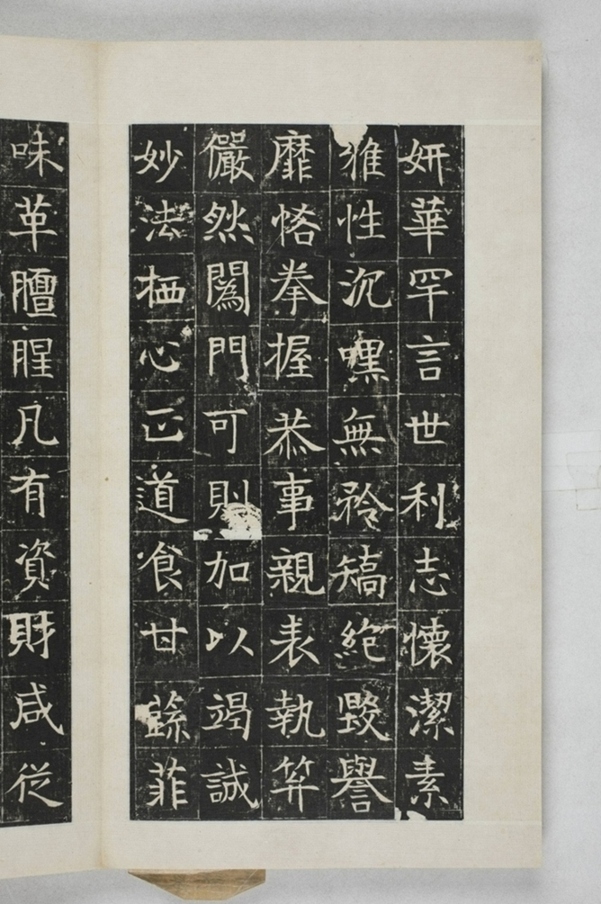 妍華罕言世利志懷潔素
雅性沉嘿無矜矯絶毀譽
靡悋拳握恭事親表執笲
儼然闈門可則加以竭誠
妙法栖心正道食甘蔬菲
味革膻腥凡有資財咸從